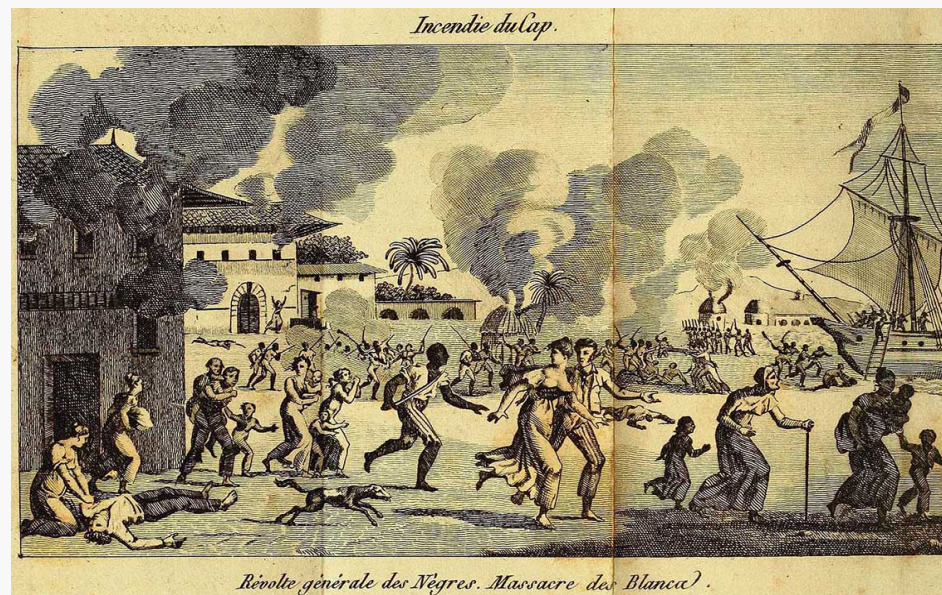 Incendie du Cap.
Révolte générale des Nègres. Massacre des Blancs.